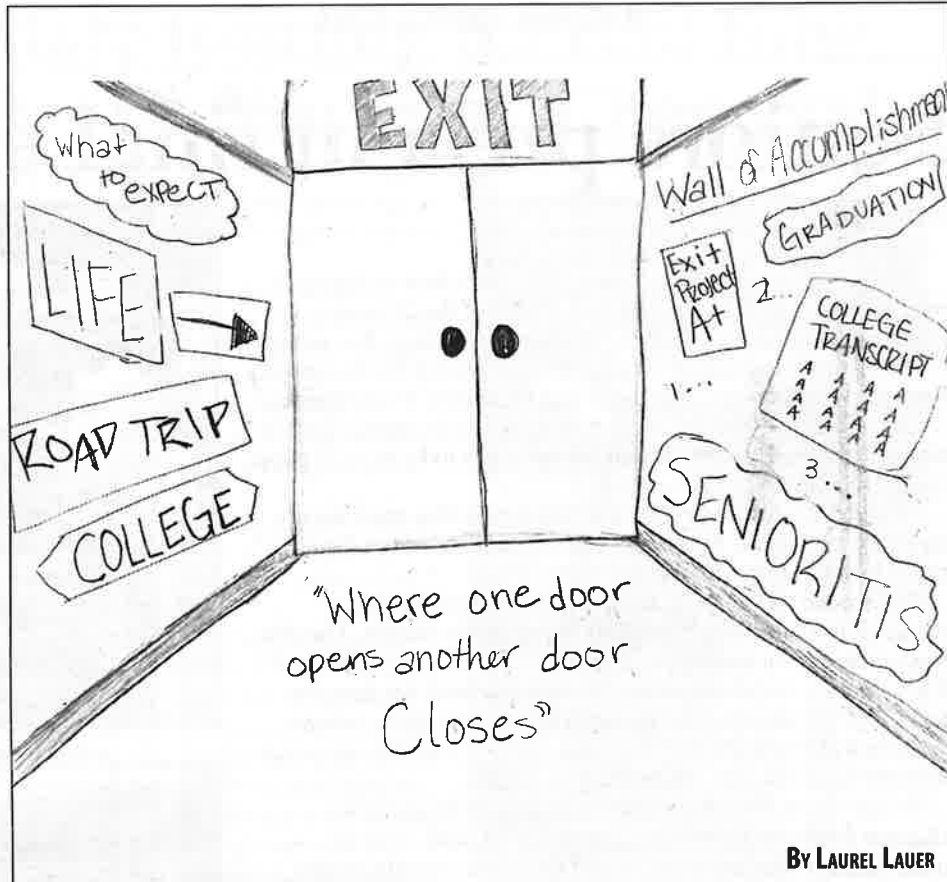 EXIT
What
to expect
LIFE
ROAD TRIP
COLLEGE
Wall of Accomplishment
GRADUATION
Exit
Project
A+
1...
2...
COLLEGE
TRANSCRIPT
A A A A
A A A A
A A A A
A A A A
3...
SENIORITIS
"Where one door
opens another door
Closes"
BY LAUREL LAUER